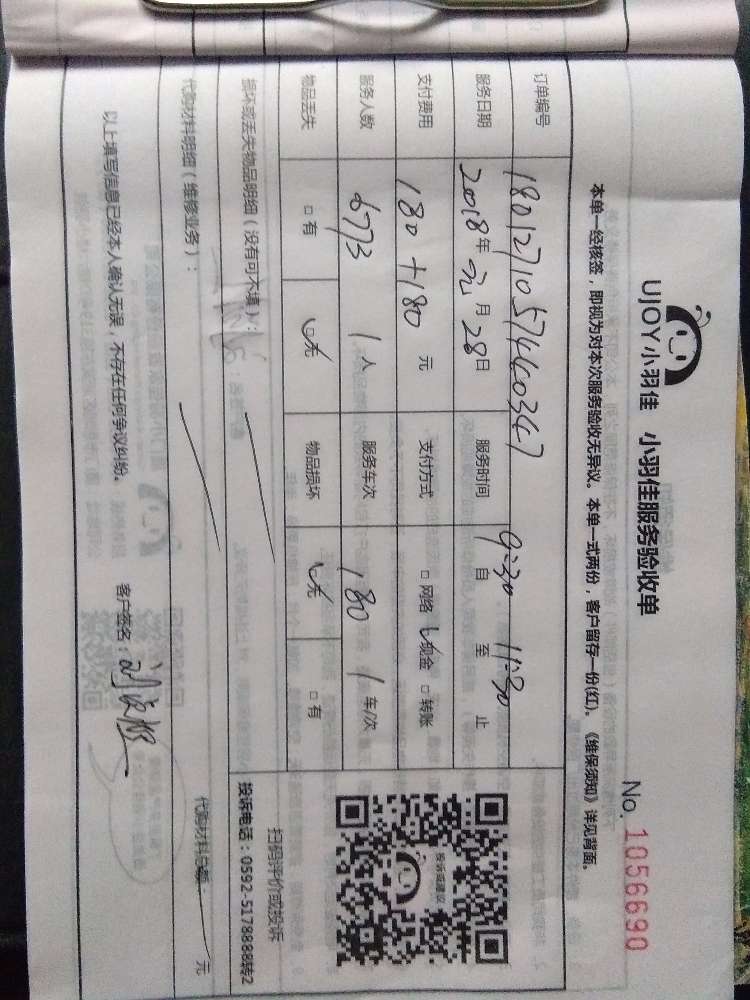 UJOY小羽佳 小羽佳服务验收单
No. 1056690
本单一经核签，即视为对本次服务验收无异议。本单一式两份，客户留存一份(红)。《维保须知》详见背面。
订单编号 18012710574460347
服务日期 2018年元月28日 服务时间 9:30自 至11:30止
支付费用 180+180元 支付方式 □网络 ☑现金 □转账
服务人数 6773 1人 服务车次 180 1车/次
物品丢失 □有 ☑无 物品损坏 ☑无 □有
损坏或丢失物品明细（没有可不填）：
代购材料明细（维修业务）： 代购材料总额： 元
以上填写信息已经本人确认无误，不存在任何争议纠纷。 客户签名：
投诉或建议
扫码评价或投诉
投诉电话：0592-5178888转2